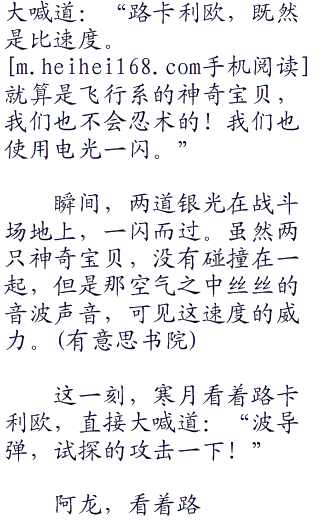 大喊道：“路卡利欧，既然
是比速度。
[m.heihei168.com手机阅读]
就算是飞行系的神奇宝贝，
我们也不会忍术的！我们也
使用电光一闪。”
瞬间，两道银光在战斗
场地上，一闪而过。虽然两
只神奇宝贝，没有碰撞在一
起，但是那空气之中丝丝的
音波声音，可见这速度的威
力。(有意思书院)
这一刻，寒月看着路卡
利欧，直接大喊道：“波导
弹，试探的攻击一下！”
阿龙，看着路